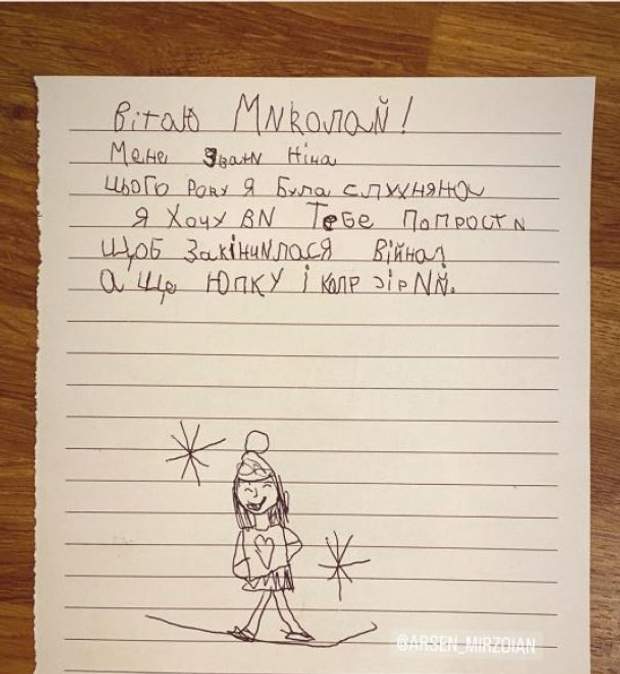 Вітаю Миколай!
Мене звати Ніна
Цього року я була слухняна
я хочу в Тебе попрости
щоб закінчилася війна!
А ще юпку і
@ARSEN_MIRZOIAN